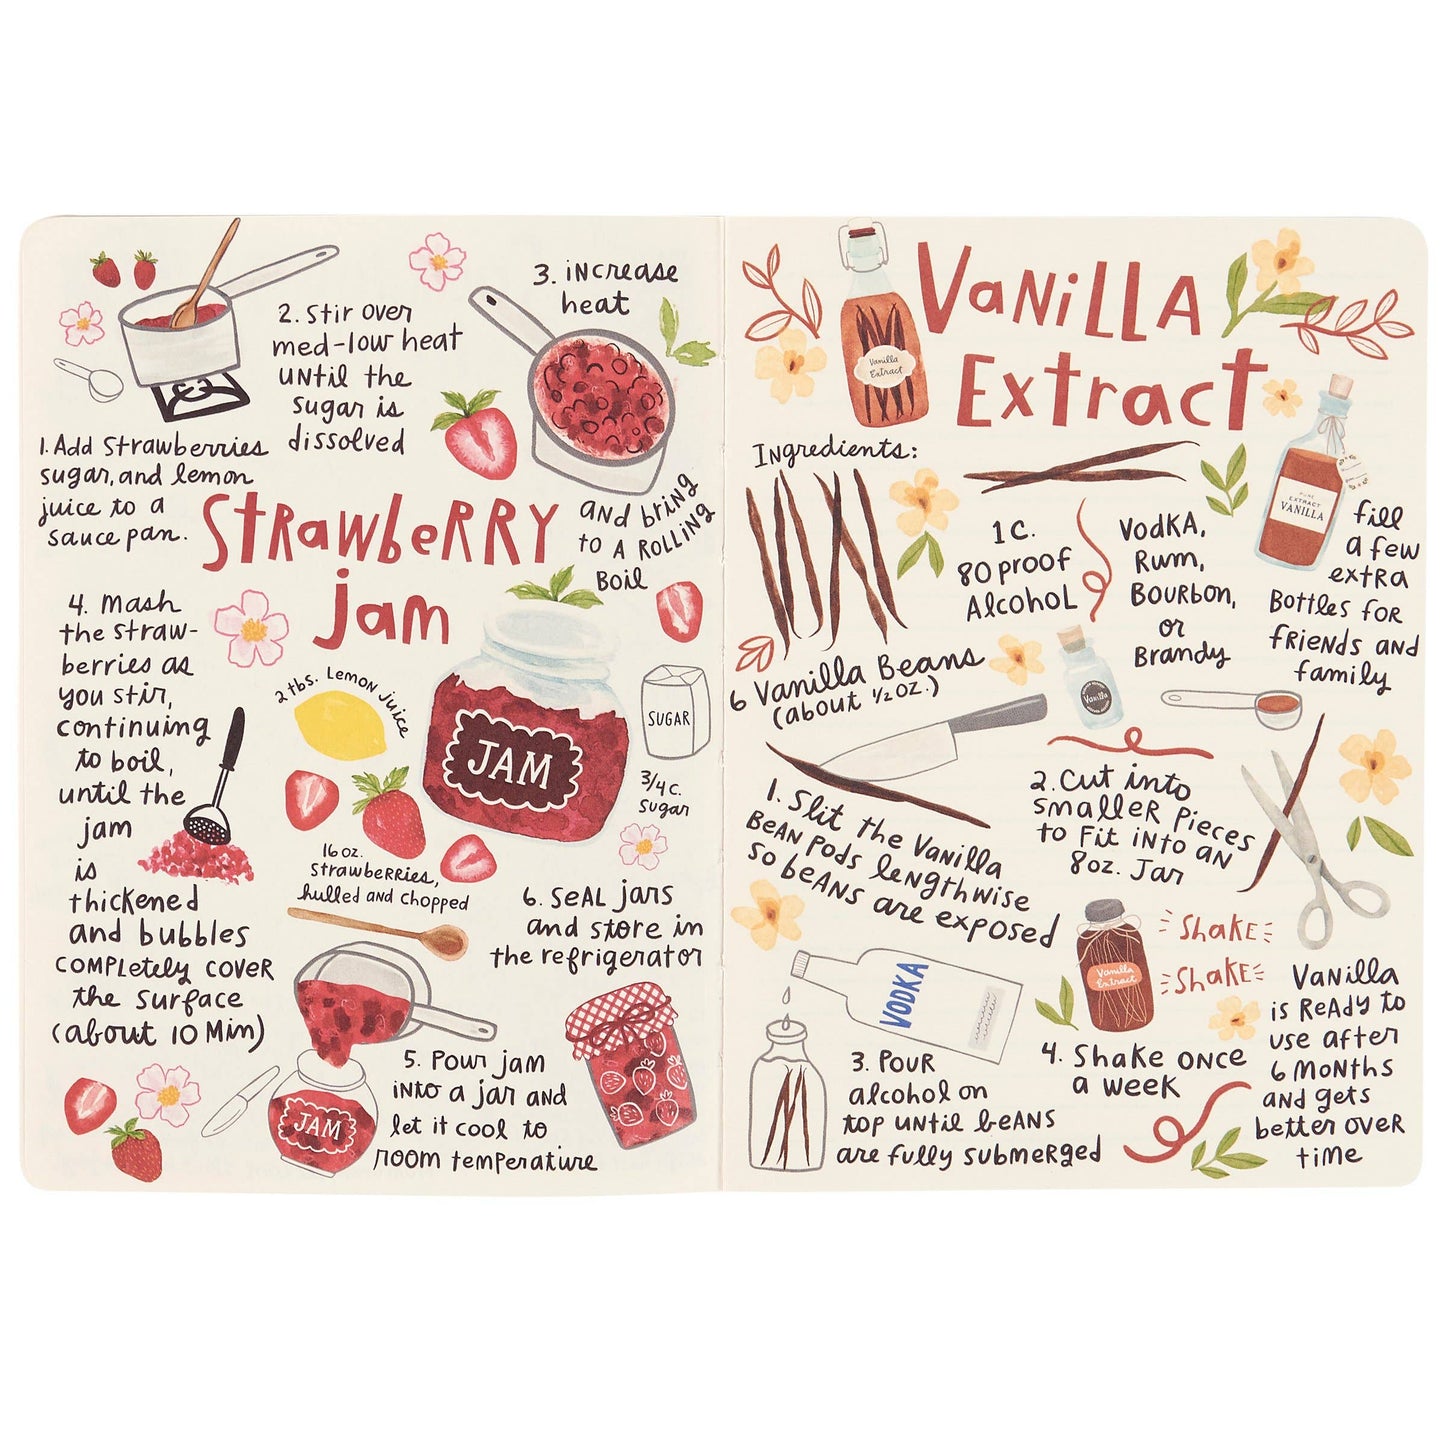 Strawberry
jam
1. Add Strawberries
sugar, and lemon
juice to a
sauce pan.
2. Stir over
med-low heat
until the
sugar is
dissolved
3. increase
heat
and bring
to a rolling
boil
4. Mash
the straw-
berries as
you stir,
continuing
to boil,
until the
jam
is
thickened
and bubbles
completely cover
the surface
(about 10 Min)
2 tbs. Lemon juice
JAM
SUGAR
3/4 c.
sugar
16 oz.
strawberries,
hulled and chopped
5. Pour jam
into a jar and
let it cool to
room temperature
JAM
6. Seal jars
and store in
the refrigerator
Vanilla
Extract
Vanilla
Extract
Ingredients:
6 Vanilla Beans
(about 1/2 oz.)
1 C.
80 proof
Alcohol
Vodka,
Rum,
Bourbon,
or
Brandy
PURE
EXTRACT
VANILLA
fill
a few
extra
Bottles for
friends and
family
Vanilla
1. Slit the Vanilla
Bean pods lengthwise
so beans are exposed
2. Cut into
smaller pieces
to fit into an
8oz. Jar
VODKA
3. Pour
alcohol on
top until beans
are fully submerged
Vanilla
Extract
Shake
Shake
4. Shake once
a week
Vanilla
is ready to
use after
6 months
and gets
better over
time